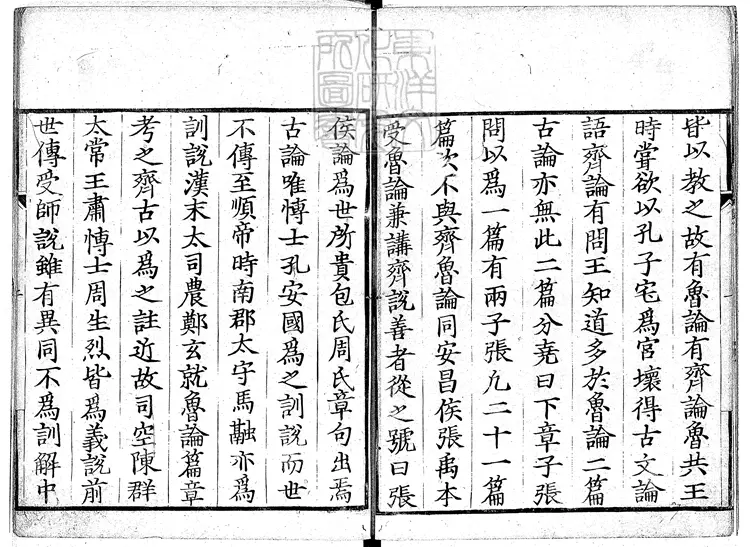 皆以教之故有魯論有齊論魯共王
時甞欲以孔子宅爲宮壞得古文論
語齊論有問王知道多於魯論二篇
古論亦無此二篇分堯曰下章子張
問以爲一篇有兩子張凢二十一篇
篇次不與齊魯論同安昌侯張禹本
受魯論兼講齊說善者從之號曰張
侯論爲世所貴包氏周氏章句出焉
古論唯博士孔安國爲之訓說而世
不傳至順帝時南郡太守馬融亦爲
訓說漢末太司農鄭玄就魯論篇章
考之齊古以爲之註近故司空陳群
太常王肅博士周生烈皆爲義說前
世傳受師說雖有異同不爲訓解中